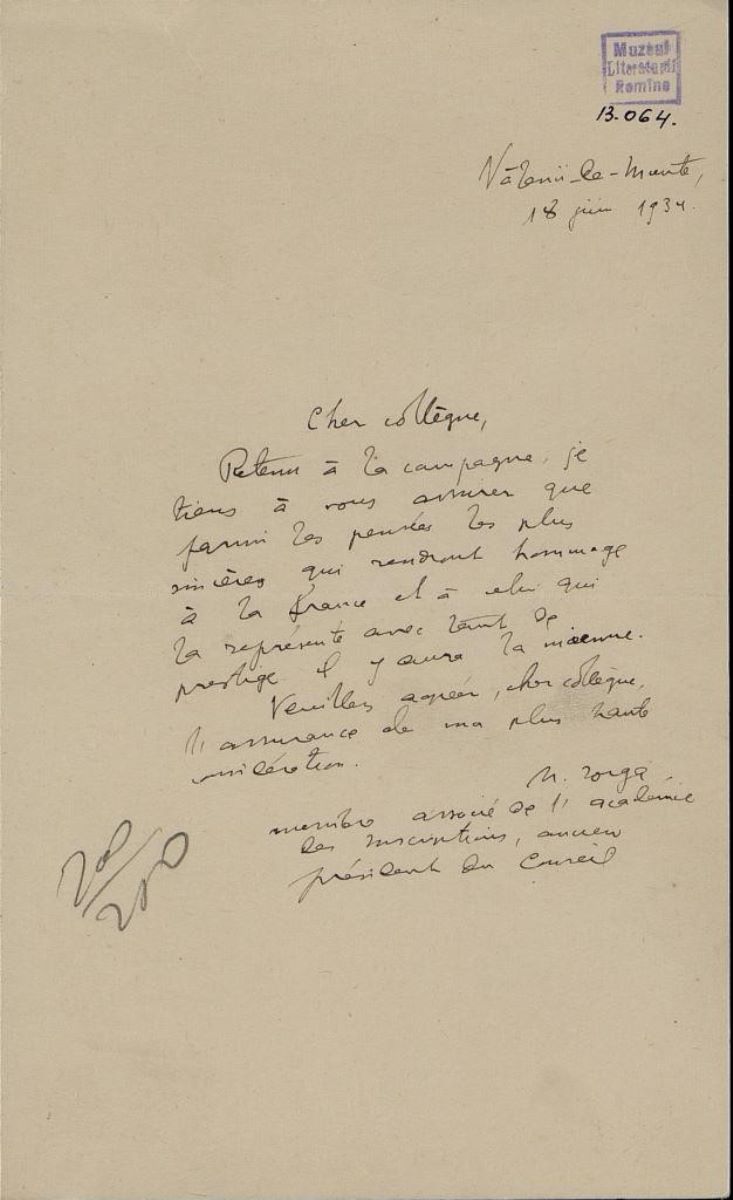 Muzeul
Literaturii
Romîne
13.064.
Vălenii-de-Munte,
18 juin 1934.
Cher collègue,
Retenu à la campagne, je
tiens à vous assurer que
parmi les pensées les plus
sincères qui rendront hommage
à la France et à celui qui
la représente avec tant de
prestige il y aura la mienne.
Veuillez agréer, cher collègue,
l'assurance de ma plus haute
considération.
N. Iorga
membre associé de l'académie
des inscriptions, ancien
président du Conseil